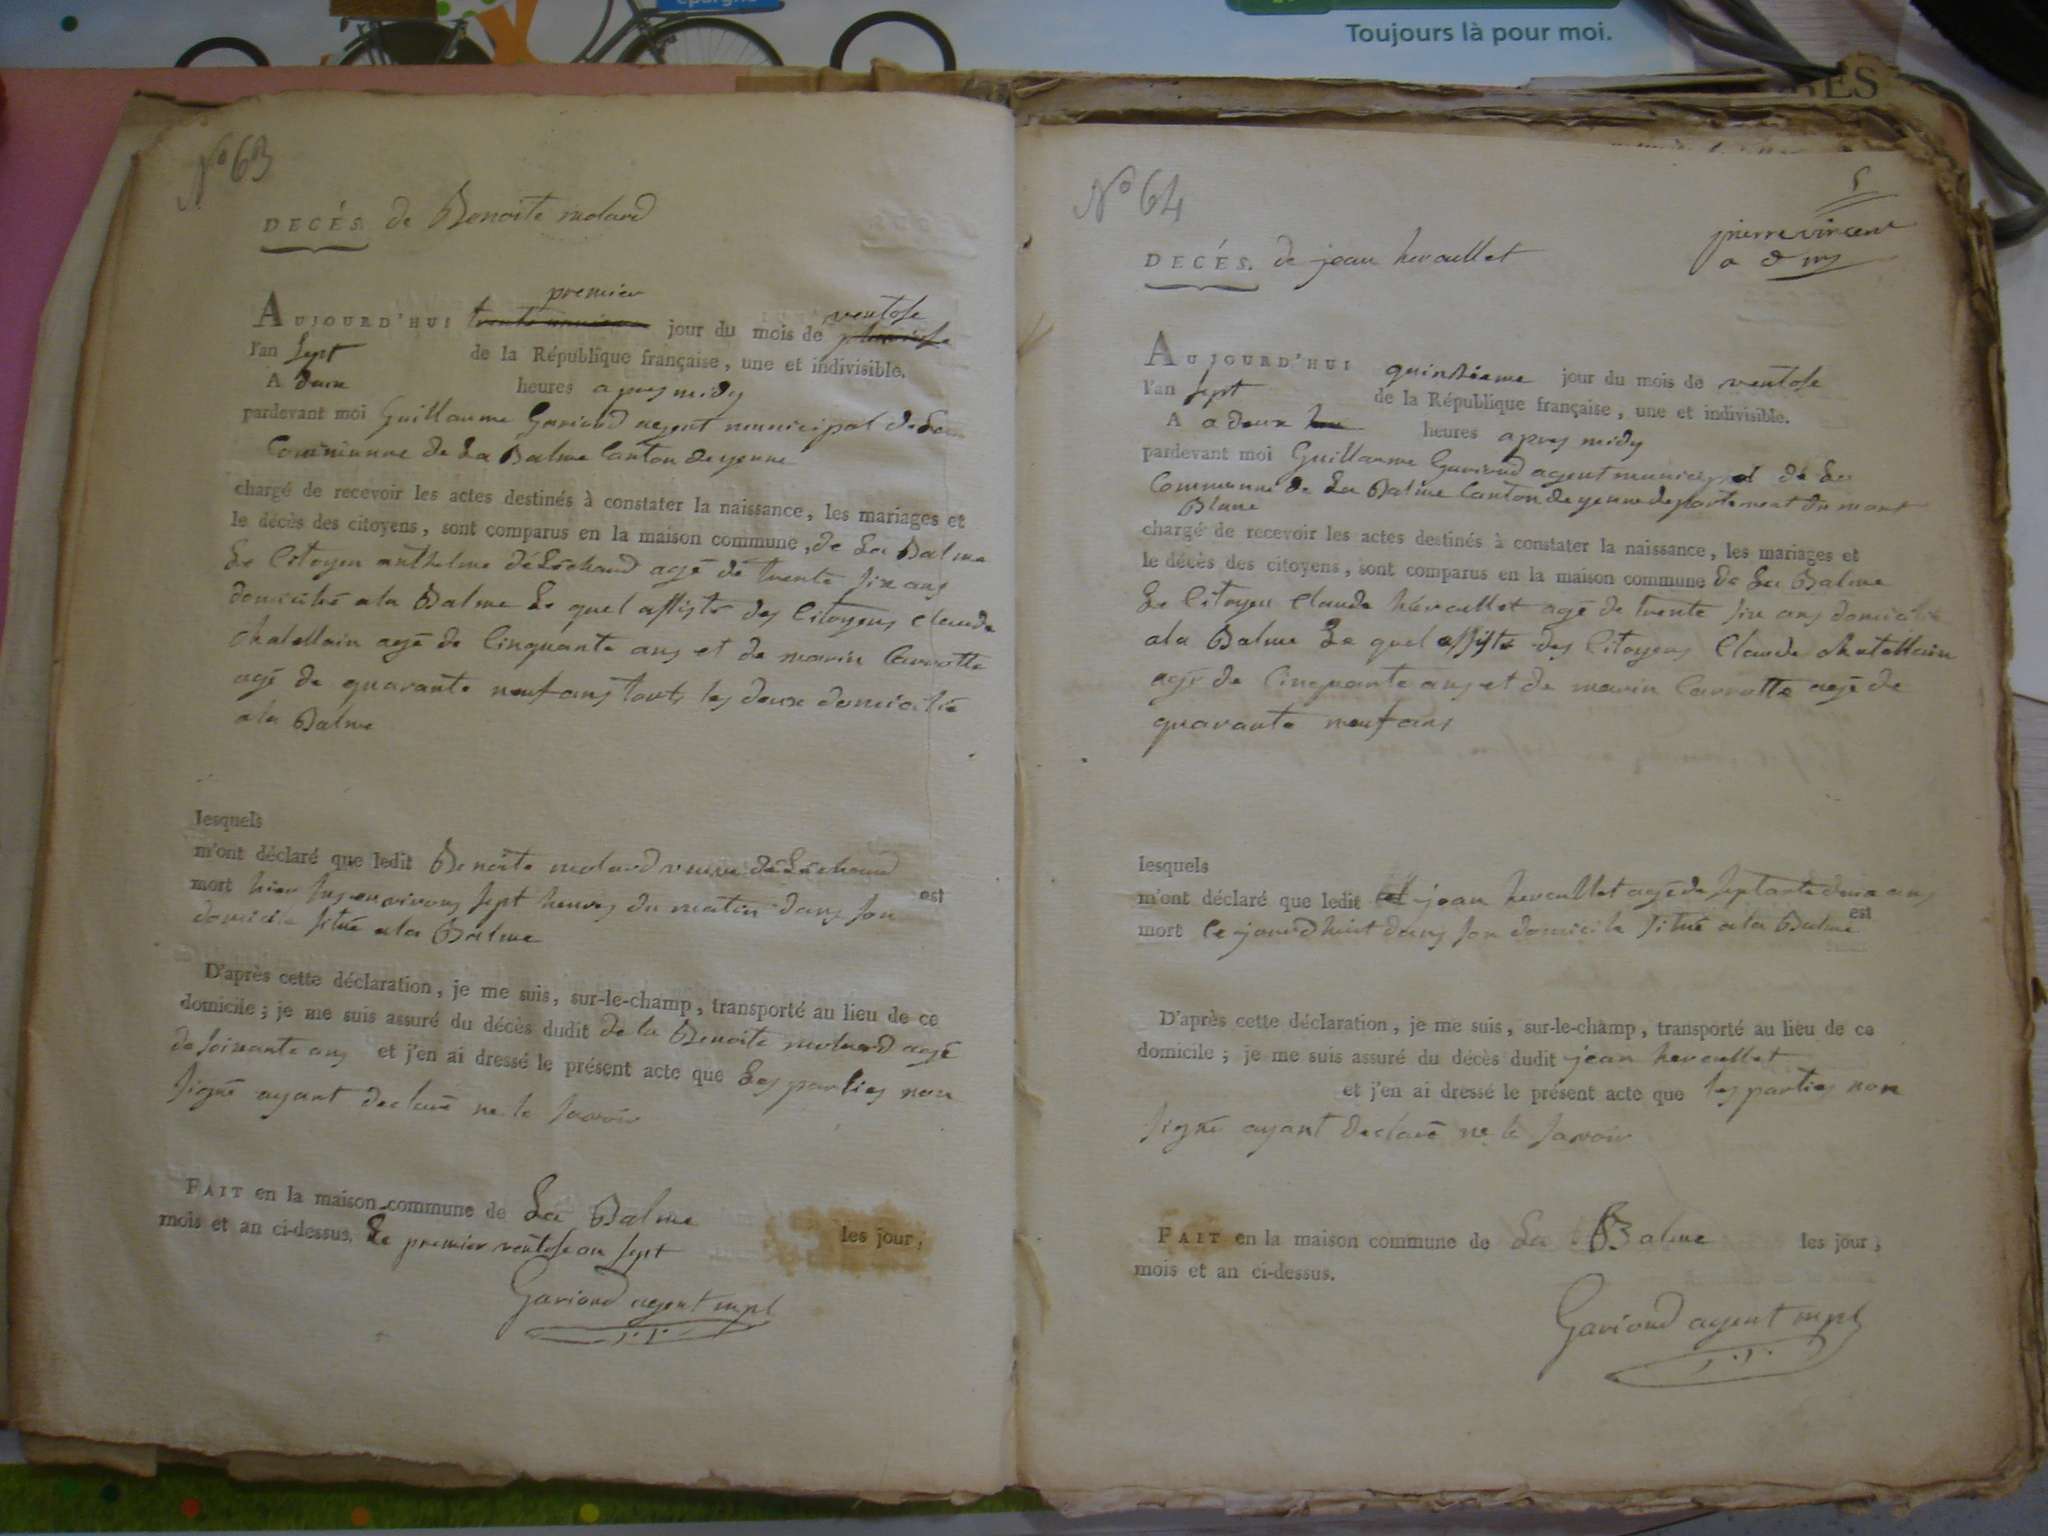 épargne
Toujours là pour moi.
RES
N° 63
DECÉS. de Benoite molard
premier ventose
AUJOURD'HUI jour du mois de
l'an sept de la République française, une et indivisible.
A deux heures apres midy
pardevant moi Guillaume Gariond agent municipal de La
Commune de La Balme Canton de yenne
chargé de recevoir les actes destinés à constater la naissance, les mariages et
le décès des citoyens, sont comparus en la maison commune, de La Balme
Le Citoyen anthelme agé de trente six ans
domicilié a la Balme Le quel assisté des Citoyens Claude
chatellain agé de Cinquante ans et de marin Carrotte
agé de quarante neuf ans touts les deux domicilié
a la Balme
lesquels
m'ont déclaré que ledit Benoite molard veuve est
mort hier sur environs sept heures du matin dans son
domicile situé a la Balme
D'après cette déclaration, je me suis, sur-le-champ, transporté au lieu de ce
domicile; je me suis assuré du décès dudit de la Benoite molard agé
de soixante ans et j'en ai dressé le présent acte que Les parties non
signé ayant declaré ne le savoir
FAIT en la maison commune de La Balme les jour,
mois et an ci-dessus. Le premier ventose an sept
Gariond agent mpl
N° 64
5
pierre vincent
DECÉS. de jean heroullet
AUJOURD'HUI quinzieme jour du mois de ventose
l'an sept de la République française, une et indivisible.
A a deux heures apres midy
pardevant moi Guillaume Gariond agent municipal de La
Commune de La Balme Canton de yenne departement du mont
Blanc
chargé de recevoir les actes destinés à constater la naissance, les mariages et
le décès des citoyens, sont comparus en la maison commune de La Balme
Le Citoyen Claude heroullet agé de trente six ans domicilié
a la Balme Le quel assisté des Citoyens Claude chatellain
agé de Cinquante ans et de marin Carrotte agé de
quarante neuf ans
lesquels
m'ont déclaré que ledit jean heroullet agé de septante deux ans est
mort Ce jourdhuit dans son domicile situé a la Balme
D'après cette déclaration, je me suis, sur-le-champ, transporté au lieu de ce
domicile; je me suis assuré du décès dudit jean heroullet
et j'en ai dressé le présent acte que les parties non
signé ayant declaré ne le savoir
FAIT en la maison commune de La Balme les jour,
mois et an ci-dessus.
Gariond agent mpl